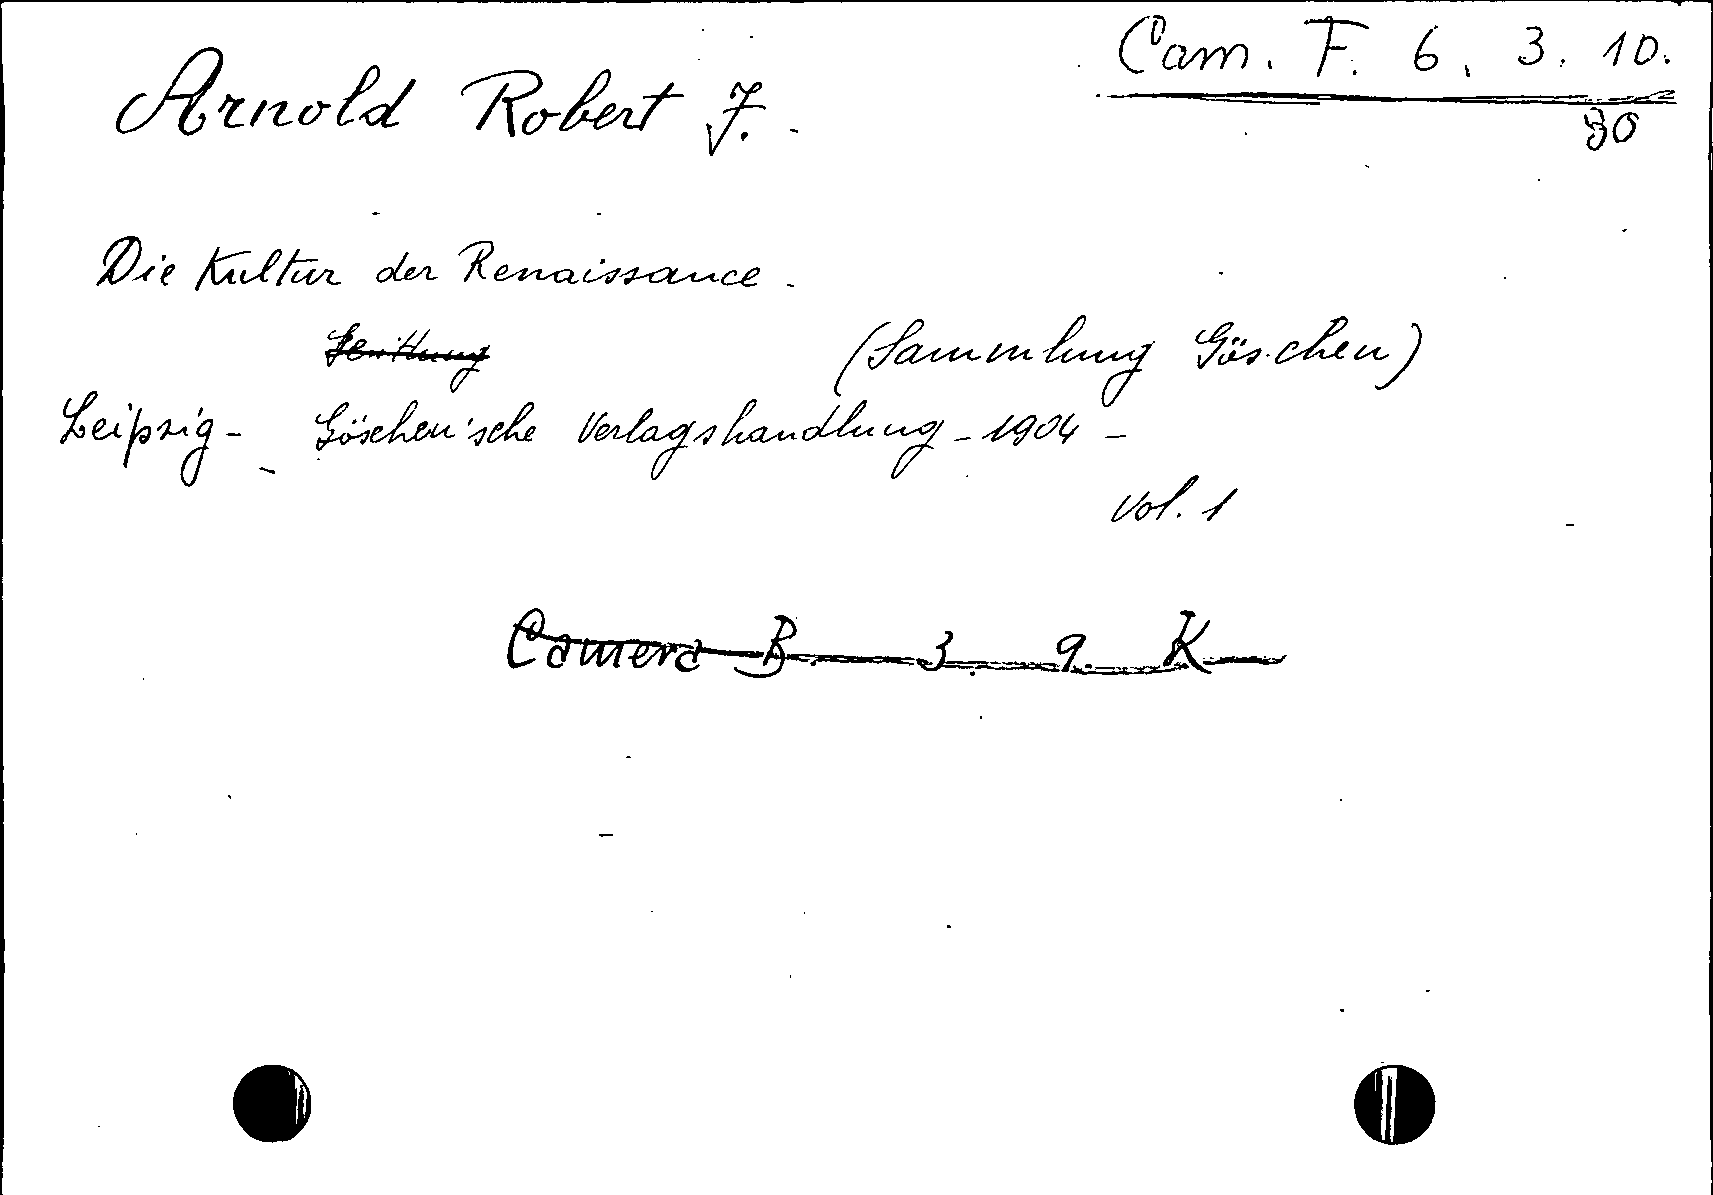 Cam. F. 6. 3. 10.
30
Arnold Robert F.
Die Kultur der Renaissance.
(Sammlung Göschen)
Leipzig - Göschen'sche Verlagshandlung - 1904 -
Vol. 1
Camera B. 3. 9. K